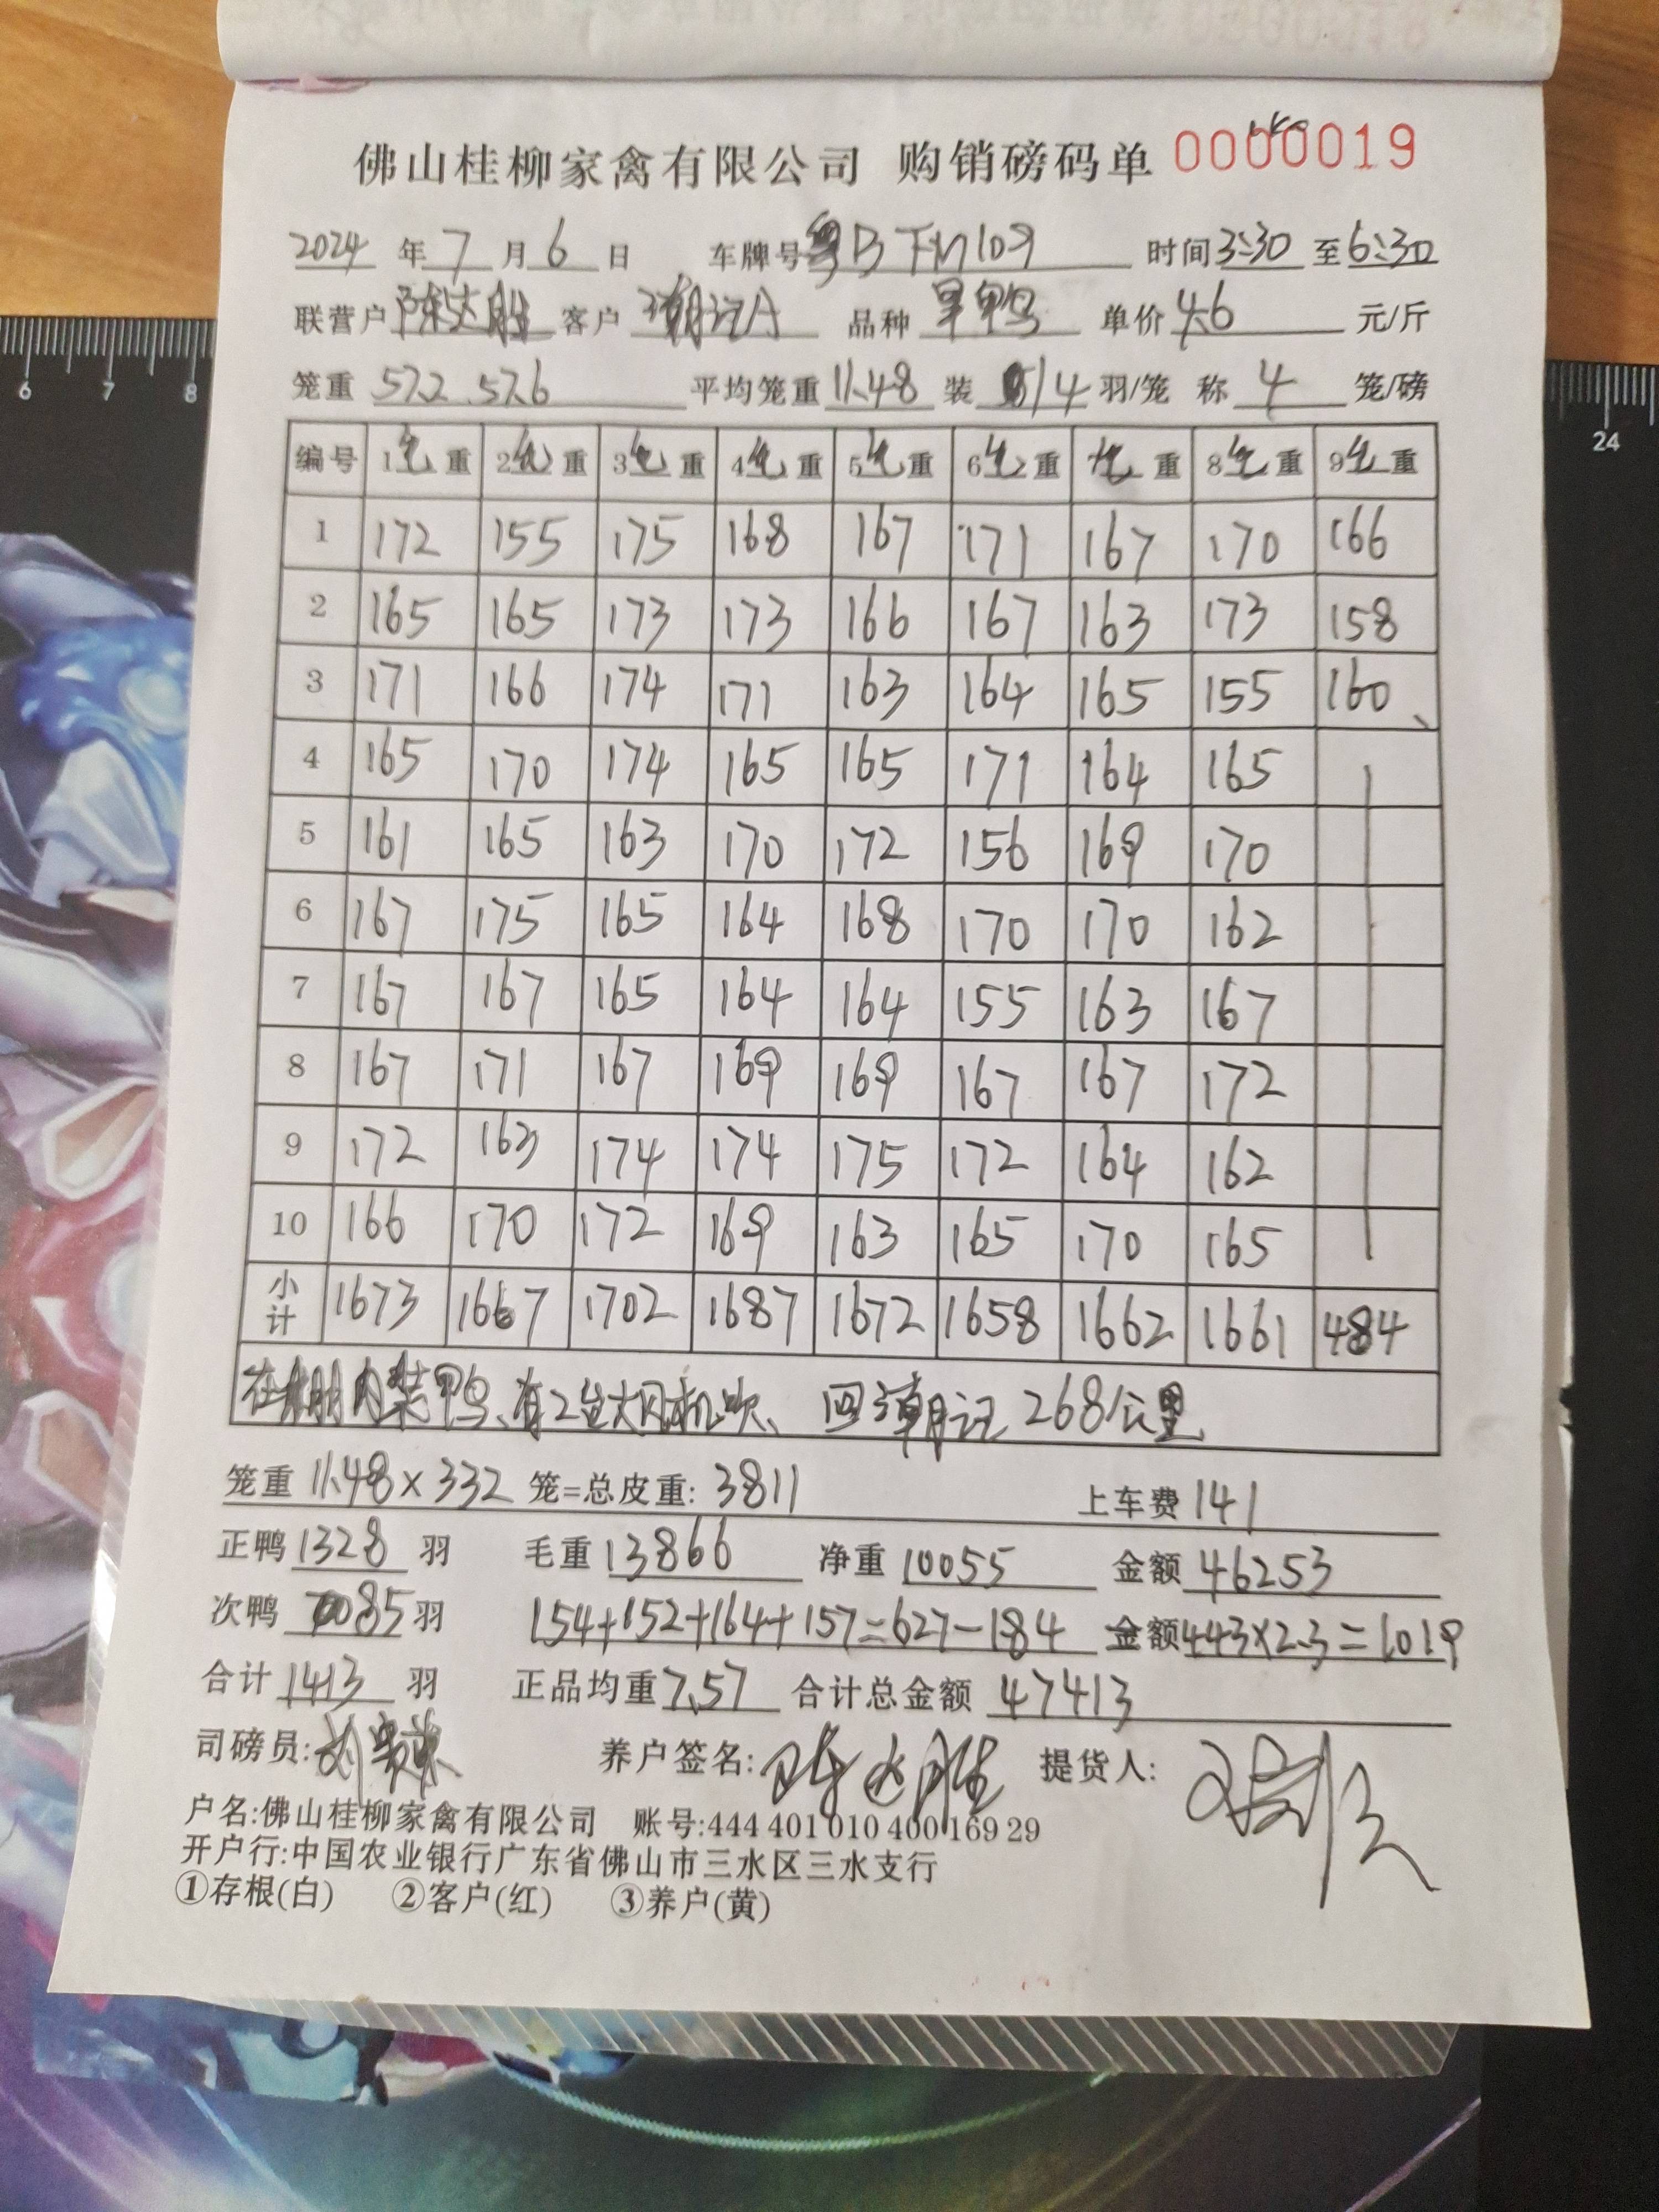 佛山桂柳家禽有限公司 购销磅码单 0000019
2024年7月6日 车牌号粤B FM109 时间3:30至6:30
联营户陈达胜 客户潮记A 品种旱鸭 单价4.6元/斤
笼重57.2 57.6 平均笼重11.48 装14羽/笼 称4笼/磅
编号 1仓重 2仓重 3仓重 4仓重 5仓重 6仓重 7仓重 8仓重 9仓重
1 172 155 175 168 167 171 167 170 166
2 165 165 173 173 166 167 163 173 158
3 171 166 174 171 163 164 165 155 160
4 165 170 174 165 165 171 164 165
5 161 165 163 170 172 156 169 170
6 167 175 165 164 168 170 170 162
7 167 167 165 164 164 155 163 167
8 167 171 167 169 169 167 167 172
9 172 163 174 174 175 172 164 162
10 166 170 172 169 163 165 170 165
小计 1673 1667 1702 1687 1672 1658 1662 1661 484
在棚内装鸭、有2台大风机吹、回潮记268公里
笼重11.48×332笼=总皮重:3811 上车费141
正鸭1328羽 毛重13866 净重10055 金额46253
次鸭85羽 154+152+164+157=627-184 金额443×2.3=1019
合计1413羽 正品均重7.57 合计总金额47413
司磅员: 养户签名:陈达胜 提货人:
户名:佛山桂柳家禽有限公司 账号:444 401 010 400 169 29
开户行:中国农业银行广东省佛山市三水区三水支行
①存根(白) ②客户(红) ③养户(黄)
6 7 8
24